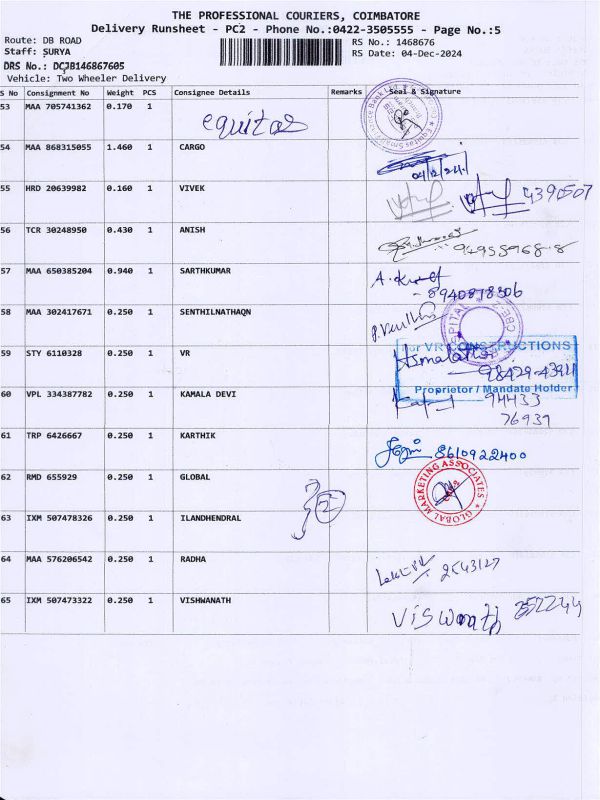 THE PROFESSIONAL COURIERS, COIMBATORE
Delivery Runsheet - PC2 - Phone No.:0422-3505555 - Page No.:5
Route: DB ROAD
RS No.: 1468676
Staff: SURYA
RS Date: 04-Dec-2024
DRS No.: DCJB146867605
Vehicle: Two Wheeler Delivery
S No Consignment No Weight PCS Consignee Details Remarks Seal & Signature
53 MAA 705741362 0.170 1 equitas
54 MAA 868315055 1.460 1 CARGO 04/12/24
55 HRD 20639982 0.160 1 VIVEK 4390507
56 TCR 30248950 0.430 1 ANISH
57 MAA 650385204 0.940 1 SARTHKUMAR
58 MAA 302417671 0.250 1 SENTHILNATHAQN
59 STY 6110328 0.250 1 VR For VR CONSTRUCTIONS
Proprietor / Mandate Holder
60 VPL 334387782 0.250 1 KAMALA DEVI 94433
76939
61 TRP 6426667 0.250 1 KARTHIK 8610922400
62 RMD 655929 0.250 1 GLOBAL GLOBAL MARKETING ASSOCIATES
63 IXM 507478326 0.250 1 ILANDHENDRAL 2
64 MAA 576206542 0.250 1 RADHA 2543127
65 IXM 507473322 0.250 1 VISHWANATH Viswanath